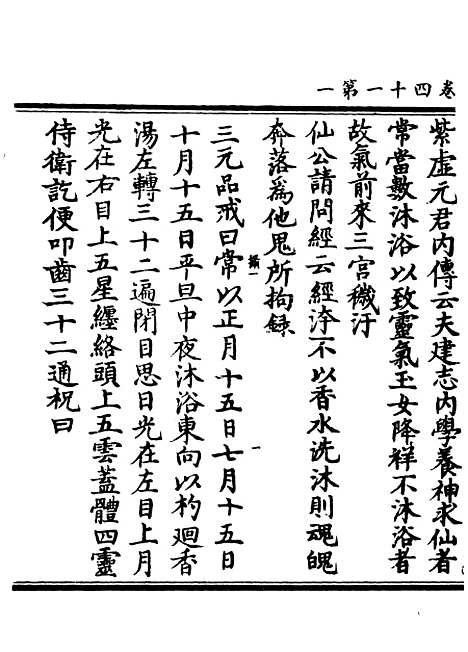 卷四十一第一
紫虛元君內傳云夫建志內學養神求仙者
常當數沐浴以致靈氣玉女降祥不沐浴者
故氣前來三宮穢汙
仙公請問經云經洿不以香水洗沐則魂魄
奔落爲他鬼所拘録
三元品戒曰常以正月十五日七月十五日
十月十五日平旦中夜沐浴東向以杓迴香
湯左轉三十二遍閉目思日光在左目上月
光在右目上五星纏絡頭上五雲蓋體四靈
侍衛訖便叩齒三十二通祝曰